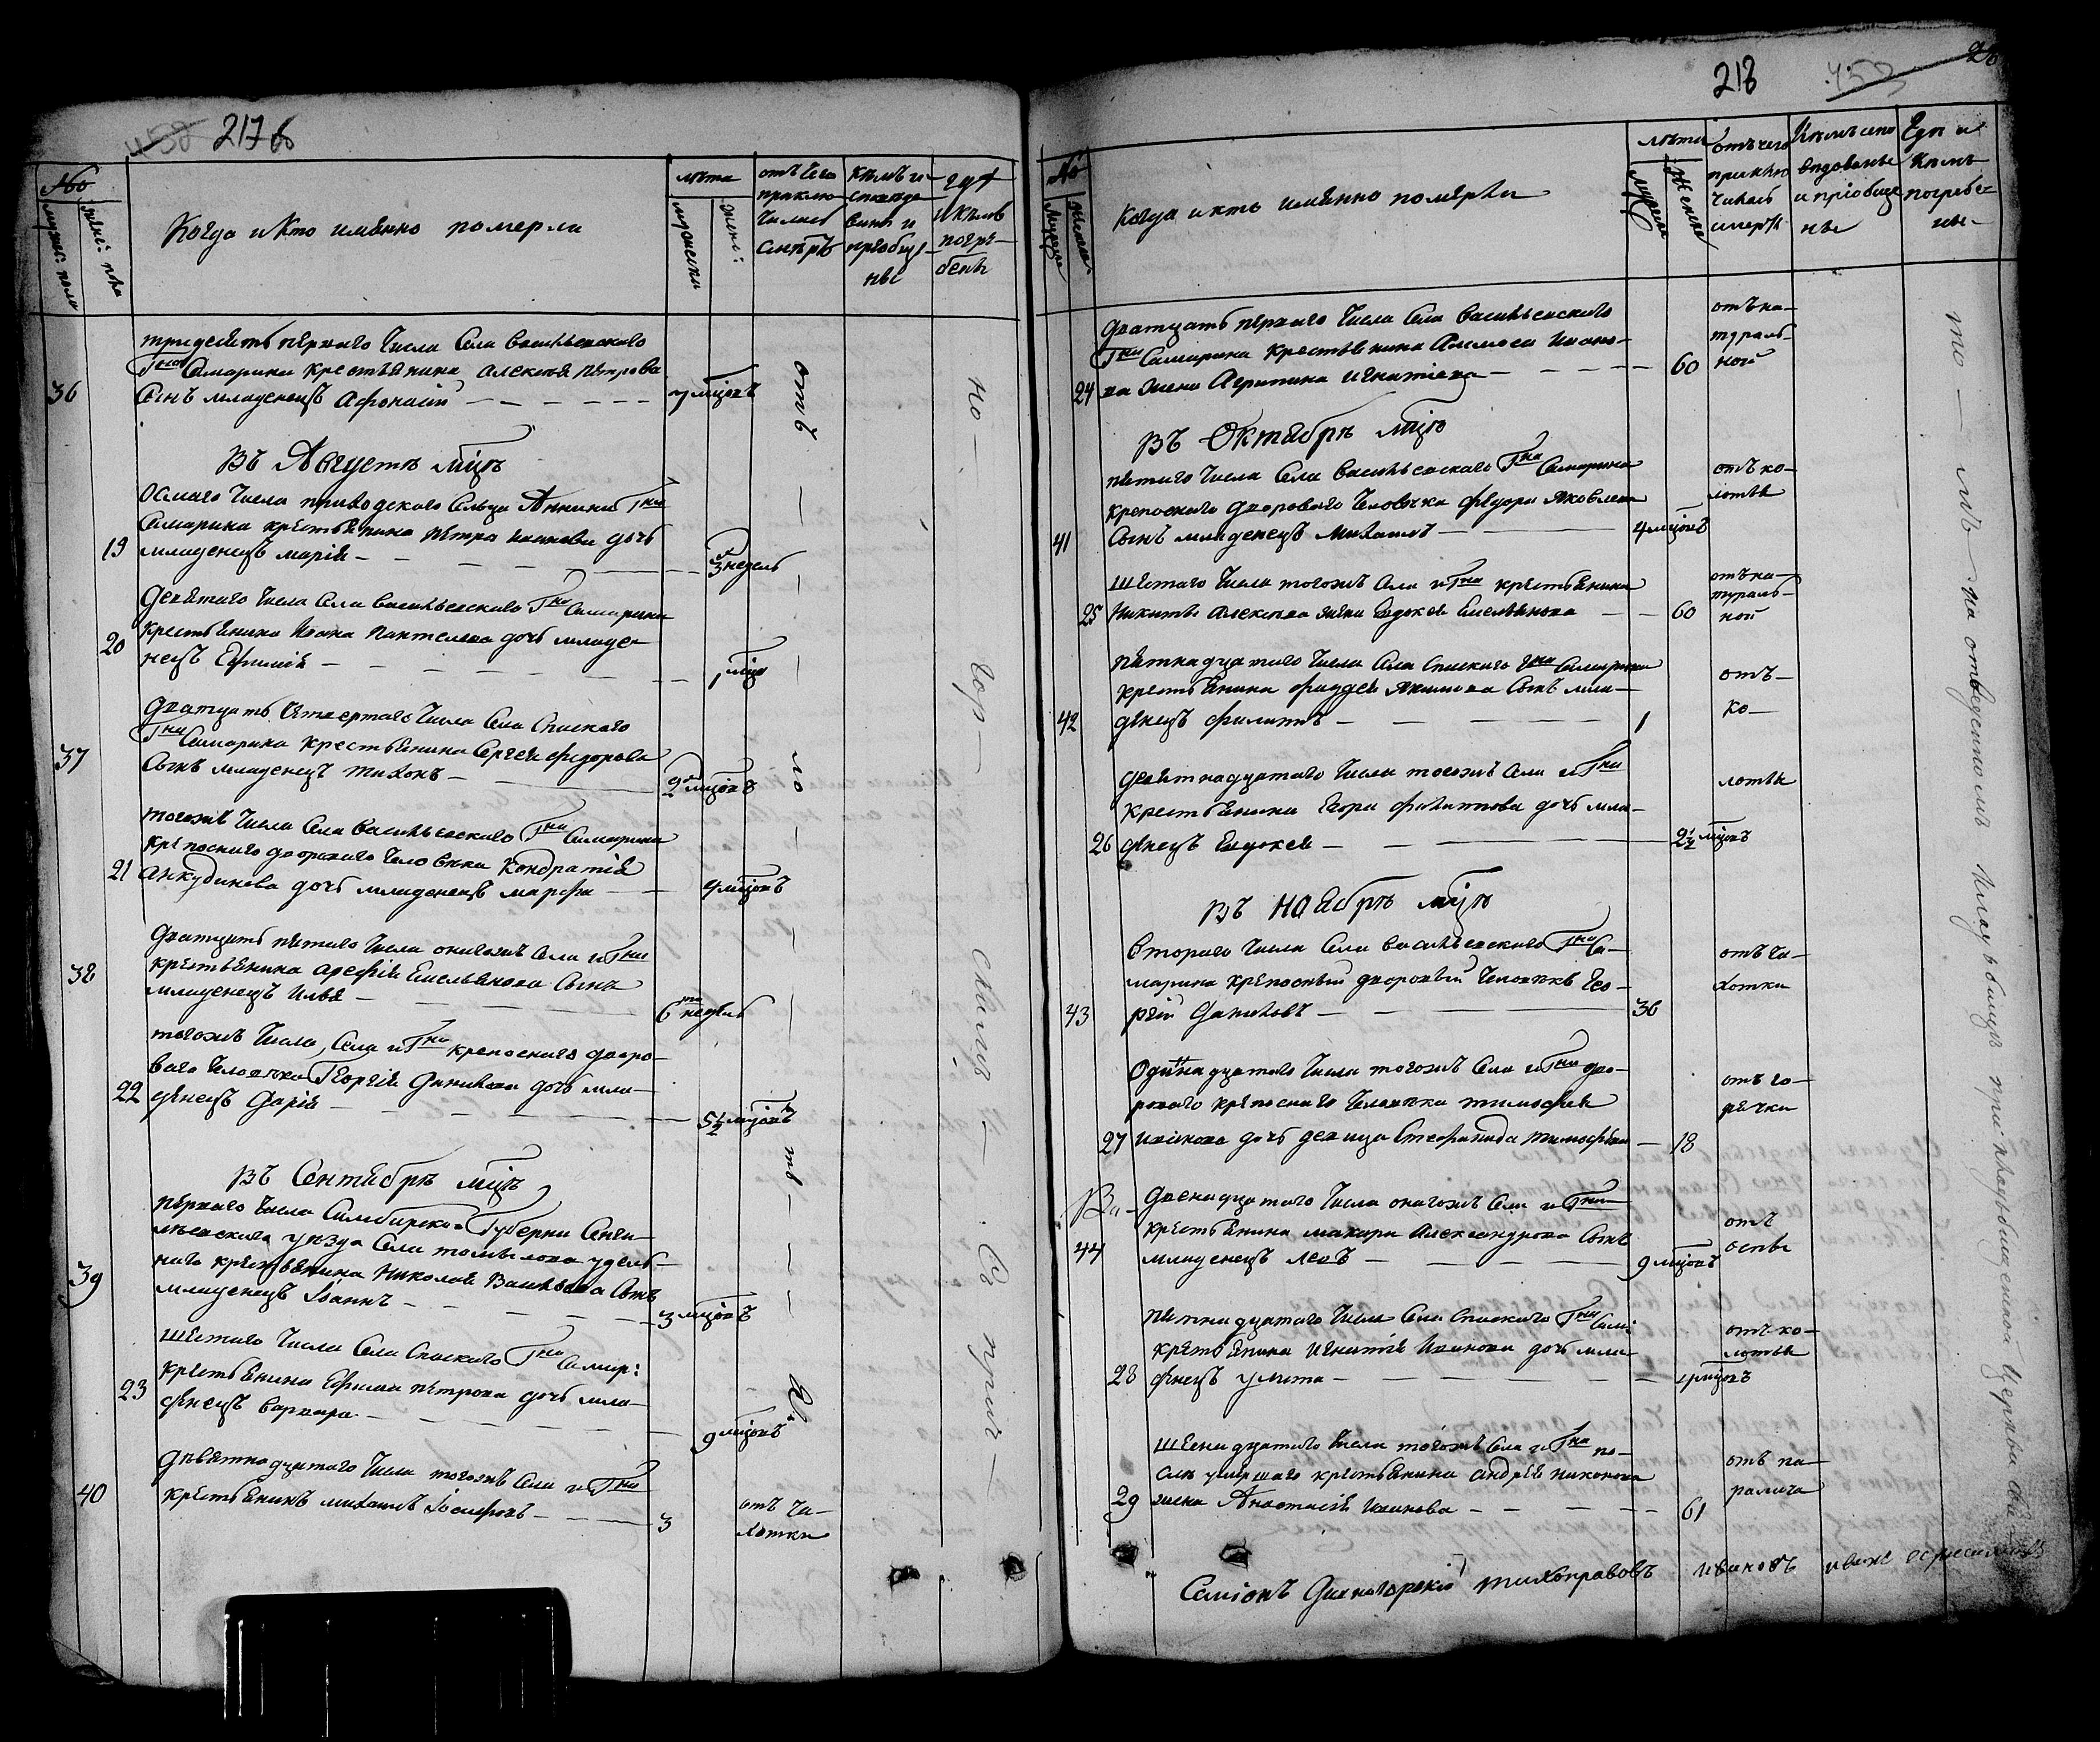 217 б
№
мужеск: пола
женс: пола
Когда и кто имянно померли
лѣта
мужеска
женс:
отъ чего
приклю
чилась
смѣрть
кѣмъ и
споведо
ваны и
приобще
ны
гдѣ
и кѣмъ
погрѣ-
бены
тридесять пѣрваго Числа Села Васильевскаго
Гна Самарина крестьянина Алексѣя Пѣтрова
36 Сынъ младенецъ Афонасий 7 мцовъ
ВЪ Августѣ мцѣ
Осмаго Числа приходскаго Сельца Аннина Гна
Самарина крестьянина Пѣтра Иванова дочь
19 младенецъ Марія 3 недель
Девятаго Числа Села Васильевскаго Гна Самарина
крестьянина Ивана Пантелеева дочь младе-
20 нецъ Ефимія 1 мца
Дватцать четвертаго Числа Села Спаскаго
Гна Самарина крестьянина Сергея Федорова
37 Сынъ младенецъ Тихонъ 2 мцовъ
тогожъ Числа Села Васильевскаго Гна Самарина
крѣпоснаго двороваго человѣка Кондратія
21 Анкудинова дочь младенецъ Марфа 4 мцовъ
Дватцать пятаго Числа онагожъ Села и Гна
крестьянина Арефія Емельянова Сынъ
38 младенецъ Илья 6 недель
тогожъ Числа, Села и Гна крепоснаго дворо-
ваго человѣка Георгія Данилова дочь мла-
22 денецъ Дарія 5½ мцовъ
ВЪ Сентябрѣ мцѣ
пѣрваго Числа Симбирской Губерни Сенги-
лѣевскаго уѣзда Села Томылова удель-
наго крестьянина Николая Васильева Сынъ
39 младенецъ Іоаннъ 3 мцовъ
шестаго Числа Села Спаскаго Гна Самар:
крестьянина Ефима Пѣтрова дочь мла-
23 денецъ Варвара 9 мцовъ
дѣвятнадцатаго Числа тогожъ Села и Гна
40 крестьянинъ Михаилъ Іосифовъ 3
отъ ча-
хотки
отъ — ко — ло — тв — я
на — гор — скимъ — Свя щен —
218
№
Мужеска
Женска
Когда и кто имянно померли
лѣта
мужеска
женска
отъ чего
приклю
чилась
смерть
Кѣмъ испо
ведованы
и пріобще
ны
Гдѣ и
Кѣмъ
погребе-
ны
дватцать пѣрваго Числа Села Васильевскаго
Гна Самарина крестьянина Алексея Ивано-
24 ва жена Агрипина Игнатіева 60
отъ на-
тураль-
ной
ВЪ Октябрѣ мцѣ
пятаго Числа Села Васильевскаго Гна Самарина
крепоснаго двороваго Человѣка Федора Яковлева
41 Сынъ младенецъ Михаилъ 4 мцовъ
отъ ко-
лотья
шестаго Числа тогожъ Села и Гна крестьянина
25 Никиты Алексѣева жена Евдокея Емельянова 60
отъ на-
тураль-
ной
пятнадцатаго Числа Села Спаскаго Гна Самарина
крестьянина Фаддея Якимова Сынъ мла-
42 денецъ Филиппъ 1
отъ-
ко-
девятнадцатаго Числа тогожъ Села и Гна
крестьянина Егора Филиппова дочь мла-
26 денецъ Евдокея 2½ мцовъ
лотья
ВЪ Ноябрѣ мцѣ
Втораго Числа Села Васильевскаго Гна Са-
марина крѣпосный дворовый Человѣкъ Гео-
43 ргій Даниловъ 36
отъ ча-
хотки
Одинадцатаго Числа тогожъ Села и Гна дво-
роваго крѣпоснаго Человѣка Тимофея
27 Иванова дочь девица Стефанида Тимофѣева 18
отъ го-
рячки
Двенадцатаго Числа онагожъ Села и Гна
крестьянина Макара Александрова Сынъ
44 младенецъ Левъ 9 мцовъ
отъ
оспы
пятнадцатаго Числа Села Спаскаго Гна Сама:
крестьянина Игнатія Иванова дочь мла-
28 денецъ Улита 4 мцовъ
отъ ко-
лотья
Шеснадцатаго Числа тогожъ Села и Гна по-
слѣ умершаго крестьянина Андрея Никонова
29 жена Анастасія Иванова 61
отъ па-
ралича
то — мъ — на отведенномъ кладбище
Семіонъ Дивногорскій Тихонравовъ Ивановъ